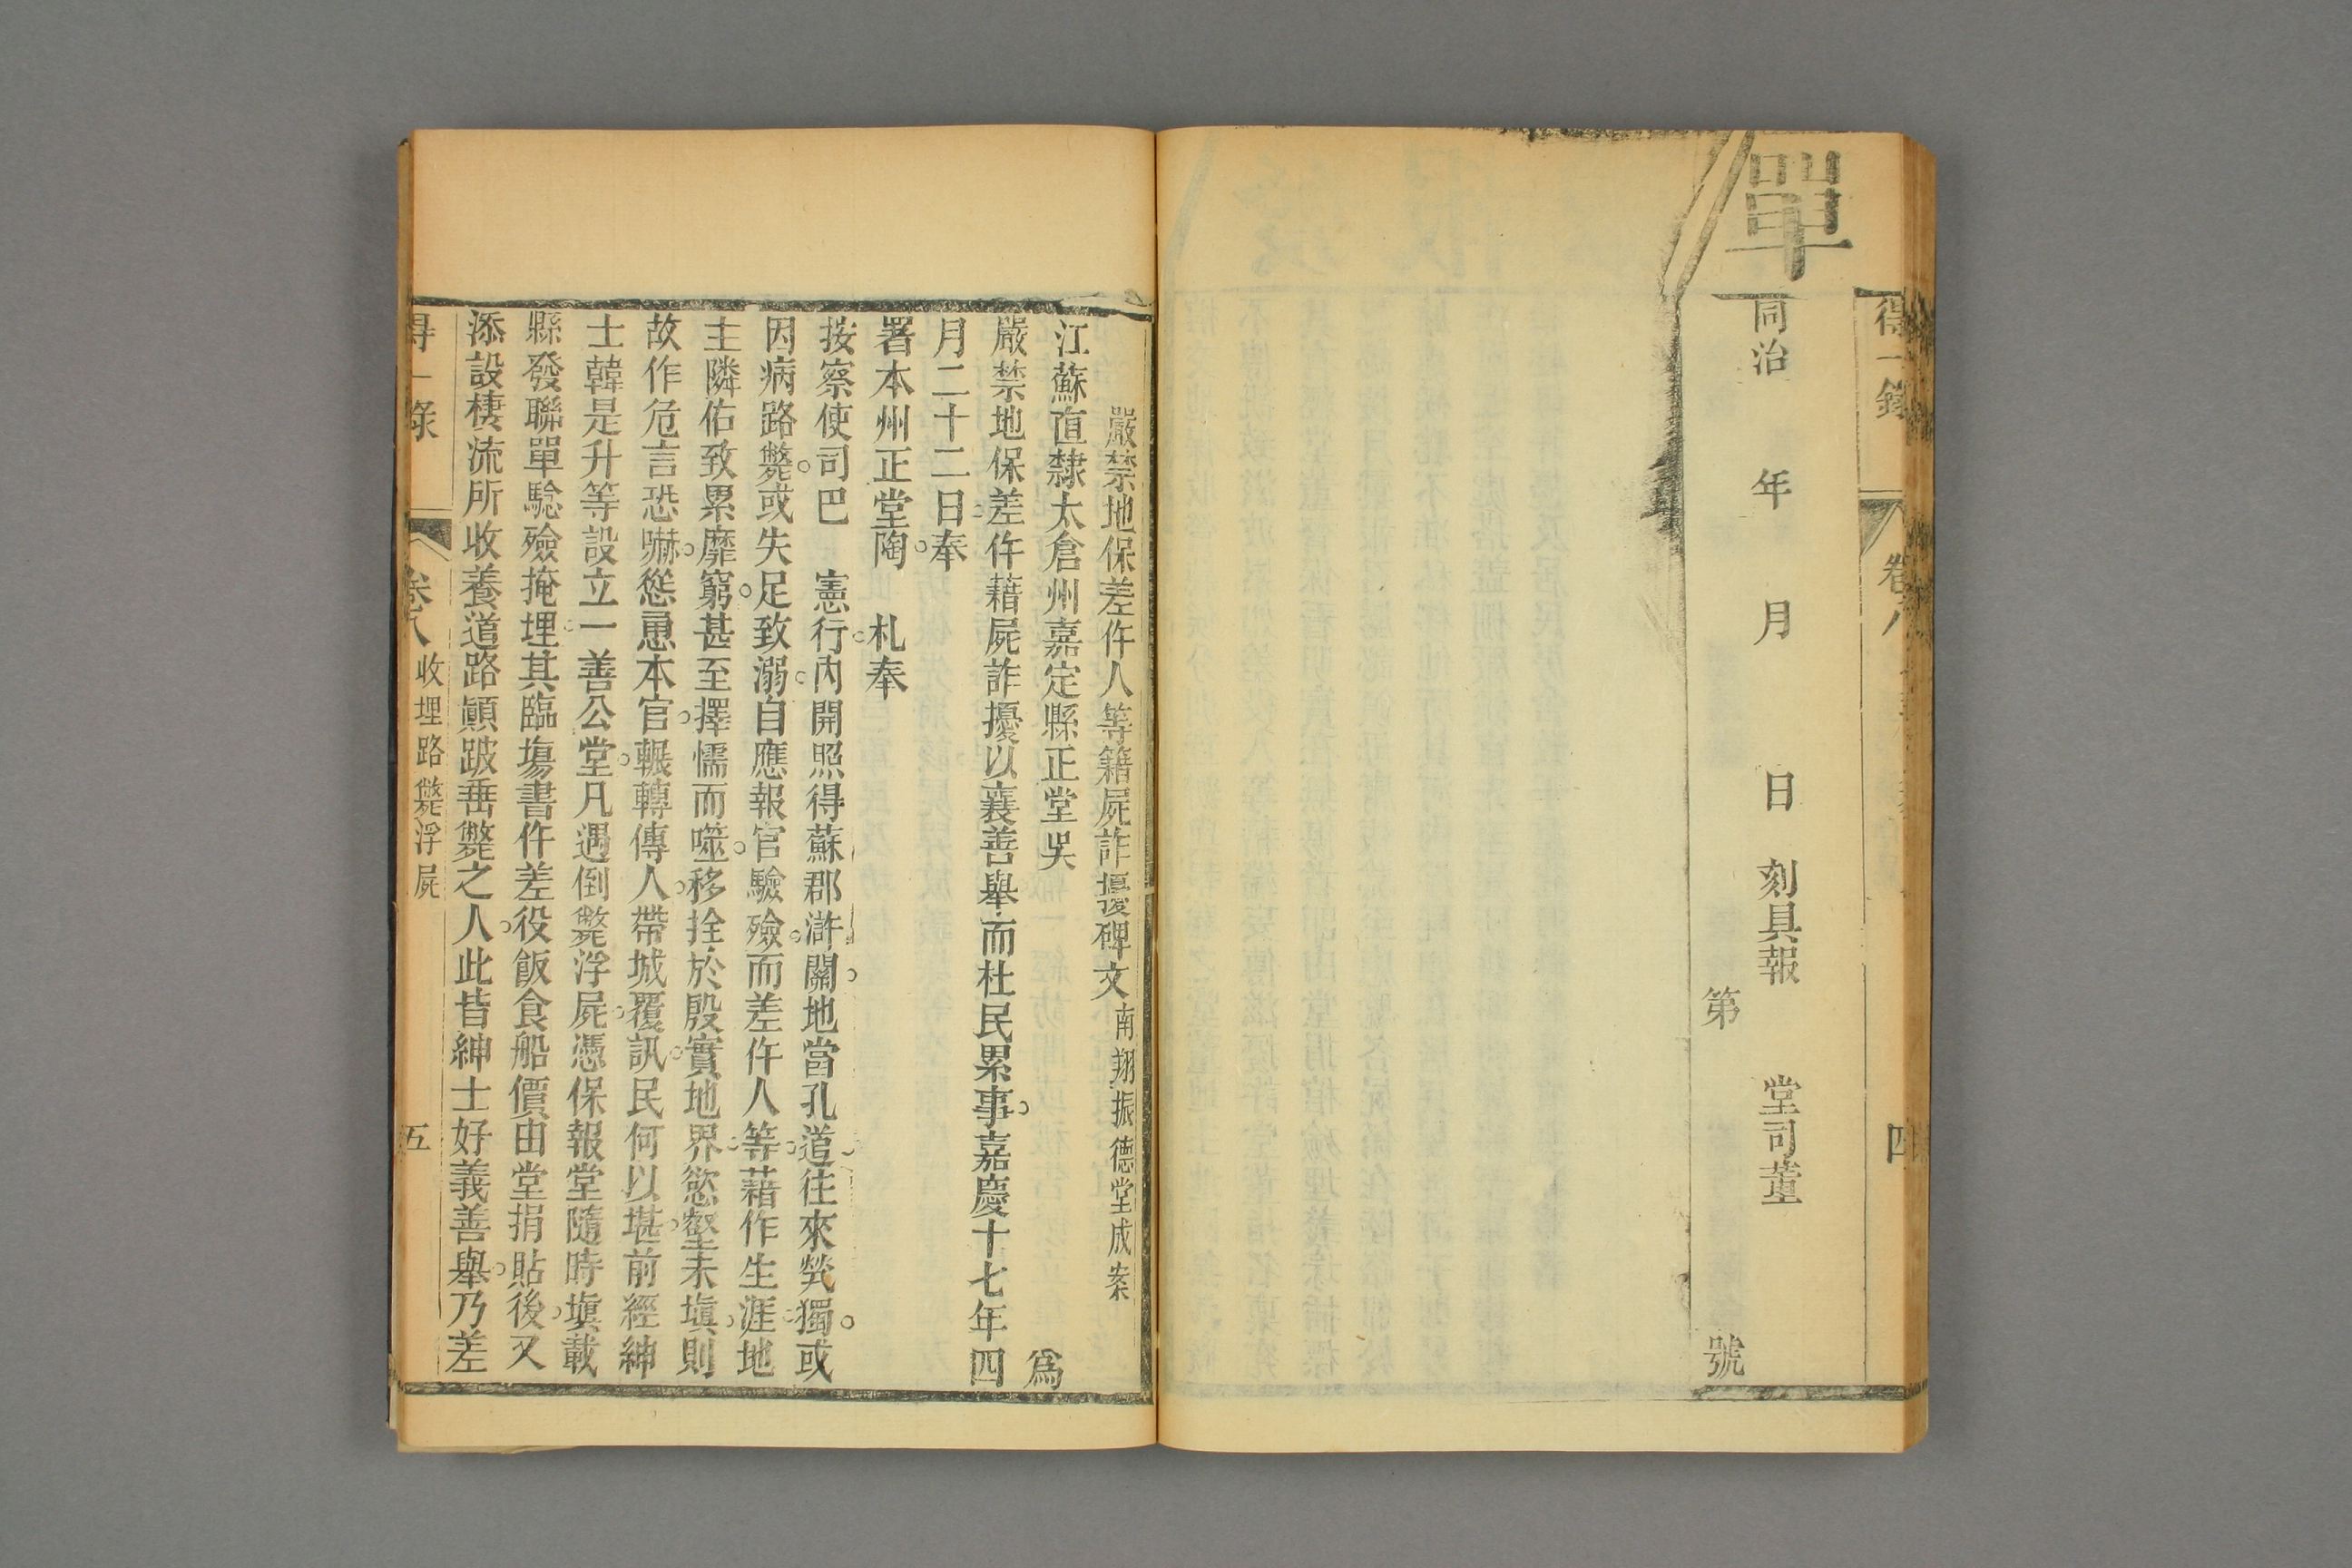 得一錄 卷八 四
單
同治 年 月 日 刻具報 堂司董
第 號
嚴禁地保差仵人等籍屍詐擾碑文 南翔振德堂成案
江蘇直隸太倉州嘉定縣正堂吳 爲
嚴禁地保差仵藉屍詐擾以襄善舉而杜民累事。嘉慶十七年四
月二十二日。奉
署本州正堂陶。 札奉
按察使司巴 憲行。內開照得蘇郡滸關。地當孔道。往來煢獨。或
因病路斃。或失足致溺。自應報官驗殮。而差仵人等。藉作生涯。地
主隣佑致累靡窮。甚至擇懦而噬。移拴於殷實地界。慾壑未塡。則
故作危言恐嚇。慫恿本官。輾轉傳人。帶城覆訊。民何以堪。前經紳
士韓是升等設立一善公堂。凡遇倒斃浮屍。憑保報堂隨時塡載
縣發聯單驗殮掩埋。其臨塲書仵差役飯食船價由堂捐貼。後又
添設棲流所收養道路顚跛垂斃之人。此皆紳士好義善舉。乃差
得一錄 卷八 收埋路斃浮屍 五